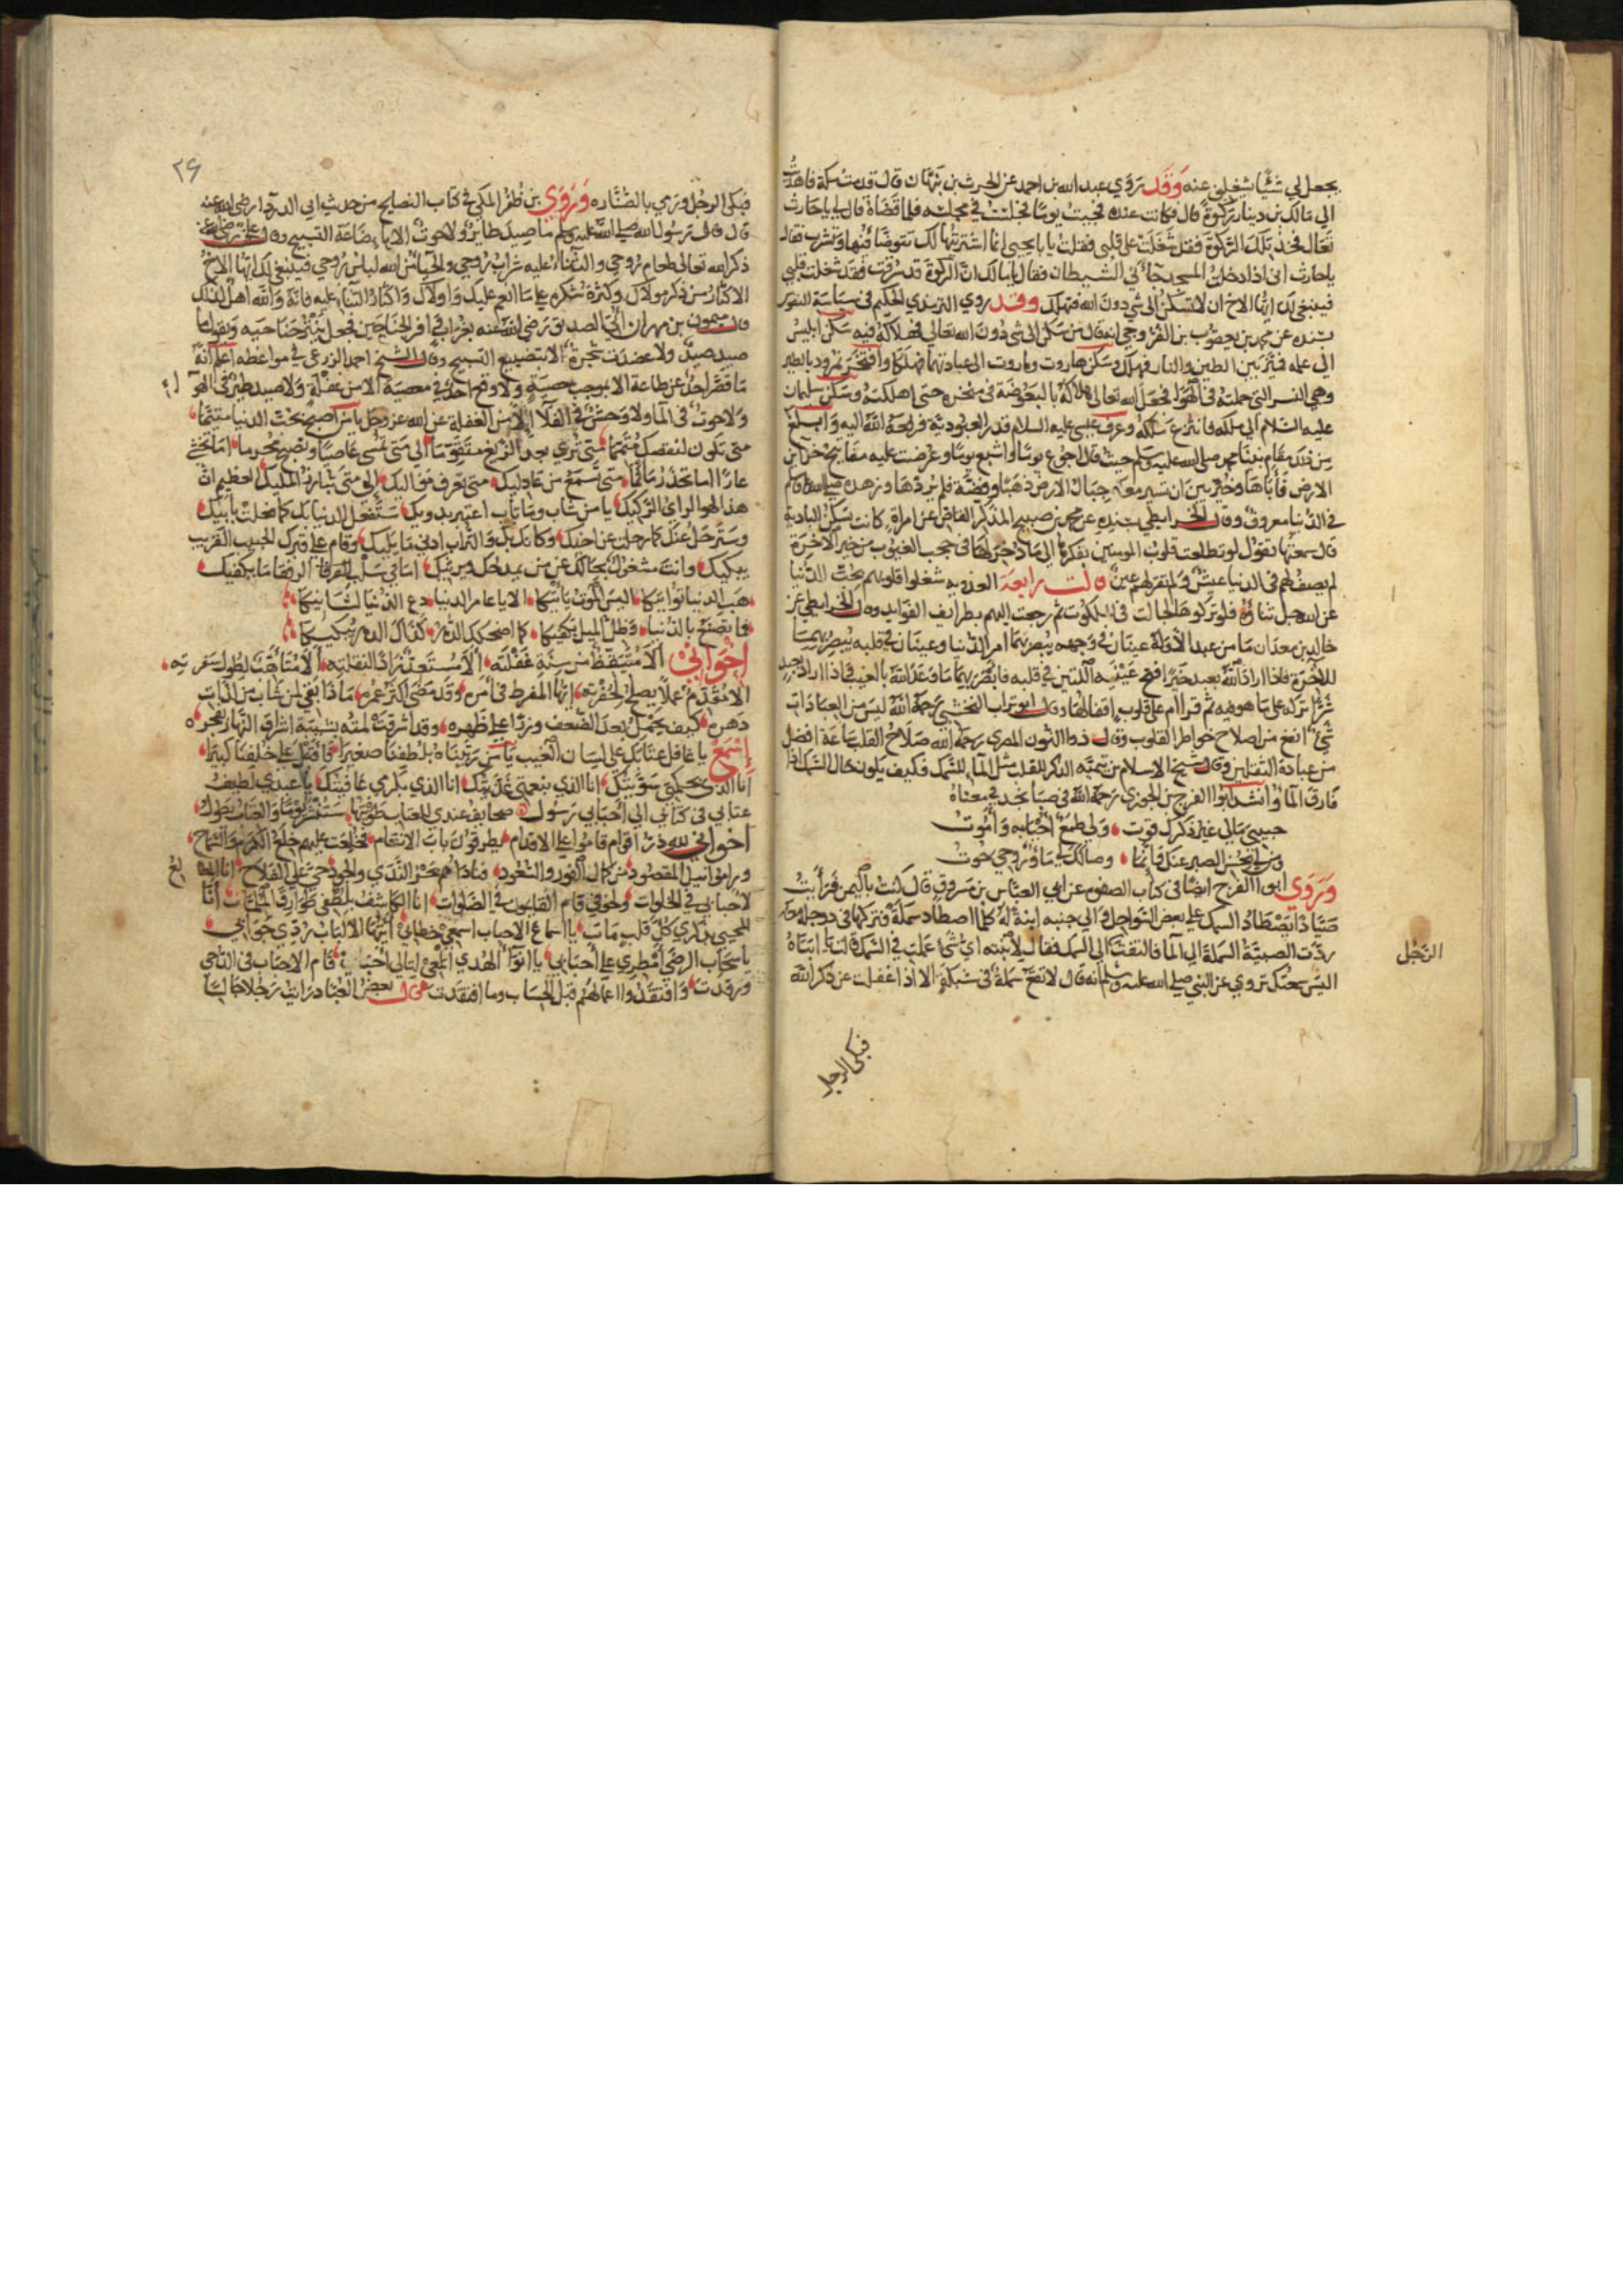 يجعل لي شيئا يشغلني عنه وقد روي عبد الله بن احمد عن الحرث بن نبهان قال قدمت من مكة فاهديت
الي مالك بن دينار ركوة قال فكانت عنده فجيت يوما فجلست في مجلسه فلما قضاه قال لي يا حارث
تعال فخذ تلك الركوة فقد شغلت علي قلبي فقلت يا ابا يحيي انما اشتريتها لك تتوضا فيها وتشرب فقال
يا حارث اني اذا دخلت المسجد جاني الشيطان فقال يا مالك ان الركوة قد سرقت فقد شغلت قلبي
فينبغي لك ايها الاخ ان لا تسكن الي شي دون الله فتهلك وقد روي الترمذي الحكيم في سياسة النفوس
بسنده عن محمد بن يعقوب بن الفرجي انه قال من سكن الي شي دون الله تعالي فهلاكه فيه سكن ابليس
الي عمله فميز بين الطين والنار فهلك وسكن هاروت وماروت الي عبادتهما فهلكا وافتخر نمرود بالطير
وهي النسر التي حملته في الهوا فجعل الله تعالي هلاكه بالبعوضة في منخره حتي اهلكته وسكن سليمان
عليه السلام الي ملكه فانتزع ملكه وعرف عيسي عليه السلام قدر العبودية فرفعه الله اليه وابلغ
من ذلك مقام نبينا محمد صلي الله عليه وسلم حيث قال اجوع يوما واشبع يوما وعرضت عليه مفاتيح خزاين
الارض فاباها وخير بين ان تسير معه جبال الارض ذهبا وفضة فلم يردها وزهده صلي الله عليه وسلم
في الدنيا معروف وقال الخرايطي بسنده عن محمد بن صبيح المذكر القاص عن امراة كانت تسكن البادية
قال سمعتها تقول لو تطلعت قلوب المومنين بفكرها الي ما ذخر لها في حجب الغيوب من خير الاخرة
لم يصف لهم في الدنيا عيش ولم تقر لهم عين قالت رابعة العدويه شغلوا قلوبهم بحب الدنيا
عن الله جل ثناؤه فلو تركوها لجالت في الملكوت ثم رجعت اليهم بطرايف الفوايد وقال الخرايطي عن
خالد بن معدان ما من عبد الا وله عينان في وجهه يبصر بهما امر الدنيا وعينان في قلبه يبصر بهما
للاخرة فاذا اراد الله بعبد خيرا فتح عينيه اللتين في قلبه فابصر بهما ما وعد الله بالغيب فاذا اراد بعبد
شرا تركه علي ما هو فيه ثم قرا ام علي قلوب اقفالها وقال ابو تراب النخشبي رحمه الله ليس من العبادات
شي انفع من اصلاح خواطر القلوب وقال ذو النون المصري رحمه الله صلاح القلب ساعة افضل
من عبادة الثقلين وقال شيخ الاسلام بن تيمية الذكر للقلب مثل الماء للسمك فكيف يكون حال السمك اذا
فارق الما وانشد ابوا الفرج بن الجوزي رحمه الله في صبا نجد في معناه
حبيبي مالي غير ذكرك قوت ولي طمع احيا به واموت
الصبر عنك فانما وصالك لي ما وروحي حوت
وروي ابو الفرج ايضا في كتاب الصفوه عن ابي العباس بن مسروق قال كنت باليمن فرايت
صيادا يصطاد السمك علي بعض السواحل والي جنبه ابنة له كلما اصطاد سمكة فتركها في دوخلة معه
ردت الصبية السمكة الي الما فالتفت الي السمك فقال لابنته اي شي عملت في السمك قالت يا ابتاه
اليس سمعتك تروي عن النبي صلي الله عليه وسلم انه قال لا تقع سمكة في شبكة الا اذا غفلت عن ذكر الله
الرجل
فبكي الرجل
٢٦
فبكي الرجل ورمي بالصناره وروي بن ظفر المكي في كتاب النصايح من حديث ابي الدردا رضي الله عنه
قال قال رسول الله صلي الله عليه وسلم ما صيد طاير ولا حوت الا باضاعة التسبيح وقال
ذكر الله تعالي طعام روحي والثناء عليه شراب روحي والحيا من الله لباس روحي فينبغي لك ايها الاخ
الاكثار من ذكر مولاك وكثرة شكره علي ما انعم عليك واولاك واكثار الثناء عليه فانه والله اهل لذلك
قال ميمون بن مهران اتي الصديق رضي الله عنه بغراب وافر الجناحين فجعل ينشر جناحيه ويقول ما
صيد صيد ولا عضدت شجرة الا بتضييع التسبيح وقال الشيخ احمد الزرعي في مواعظه اعلم انه
ما قصر احد عن طاعة الا بموجب ولا وقع احد في معصية الا من غفلة ولا صيد طير في الهوا
ولا حوت في الما ولا وحش في الفلا الا من الغفلة عن الله عز وجل يا من اصبح بحب الدنيا متيما
عارا اما تحذر ماثما متي تسمع من عاذليك متي تعرف الي متي تبارز المليك العظيم ان
هذا لهو الراي الركيك يا من شاب وما تاب اعتبر بذويك ستفعل الدنيا بك كما فعلت بابيك
وسترحل عنك كما رحلت عن اخيك وكانك بك والتراب ادني ما يليك وقام علي قبرك الحبيب القريب
يبكيك وانت مشغول بحالك عن من يمدحك ويرثيك اما في سلب القرنا الرفقا ما يكفيك
هب الدنيا تواتيكا اليس الموت ياتيكا الا يا عامر الدنيا دع الدنيا لشانيكا
فما تصنع بالدنيا وظل الميل يكفيكا كما اضحكك الدهر كذاك الدهر يبكيكا
اخواني الا متيقظ من سنة غفلته الا مستعد زادا لنقلته الا متاهب لطول سفرته
الا مقدم عملا يصلح لحفرته ايها المفرط في امره وقد مضي اكثر عمره ماذا بقي لمن شاب من لذات
دهره كيف يحمل بعد الضعف وزرا علي ظهره وقد اشرقت لمته بشيبة اشراق النهار لفجره
اسمع يا غافل عتابك علي لسان الغيب يا من ربيناه بلطفنا صغيرا
عتابي في كتابي الي احبابي رسول صحايف عندي للعتاب طويتها ستنشر يوما والعتاب يطول
اخواني لله در اقوام قاموا علي الاقدام يطرقون باب الانعام فخلعت عليهم خلع الكرم والسماح
وراموا نيل المقصود من كمال الفوز والسعود فناداهم معدن الندي والجود حي علي الفلاح
يا سحاب الرضي امطري علي احبابي يا انوار الهدي المعي ليالي احبابي قام الاحباب في الدجي
ورقدت وافتقدوا اعمالهم قبل الحساب وما افتقدت قال بعض العباد رايت رجلا جالسا